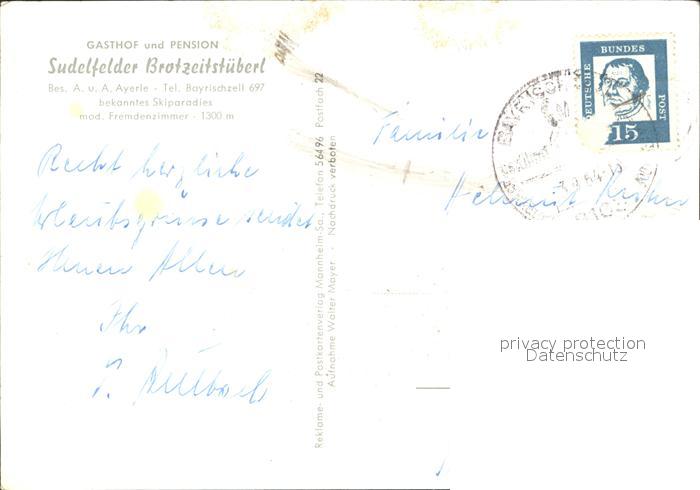 GASTHOF und PENSION
Sudelfelder Brotzeitstüberl
Bes. A. u. A. Ayerle - Tel. Bayrischzell 697
bekanntes Skiparadies
mod. Fremdenzimmer - 1300 m
Recht herzliche
Urlaubsgrüsse sendet
Ihnen Allen
Ihr
Reklame- und Postkartenverlag Mannheim-Sa., Telefon 56496 Postfach 22
Aufnahme Walter Mayer - Nachdruck verboten
DEUTSCHE BUNDES POST
15
Familie
Helmut
privacy protection
Datenschutz